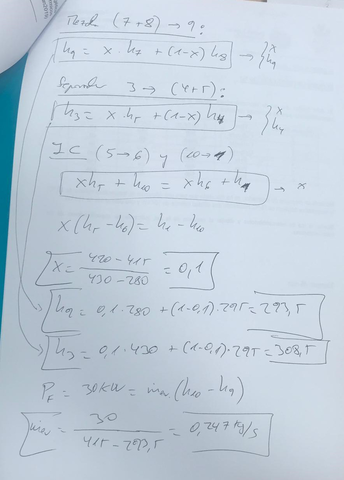 Mezcla (7+8) → 9:
h9 = x·h7 + (1-x) h8 → { x h9
Separador 3 → (4+5):
h3 = x·h5 + (1-x) h4 → { x h4
IC (5→6) y (10→1)
xh5 + h10 = xh6 + h1 → x
x(h5-h6) = h1-h10
x = 420-415 / 430-280 = 0,1
h9 = 0,1·280 + (1-0,1)·295 = 293,5
h3 = 0,1·430 + (1-0,1)·295 = 308,5
Pf = 30KW = (h10-h9)
= 30 / 415-293,5 = 0,247 kg/s